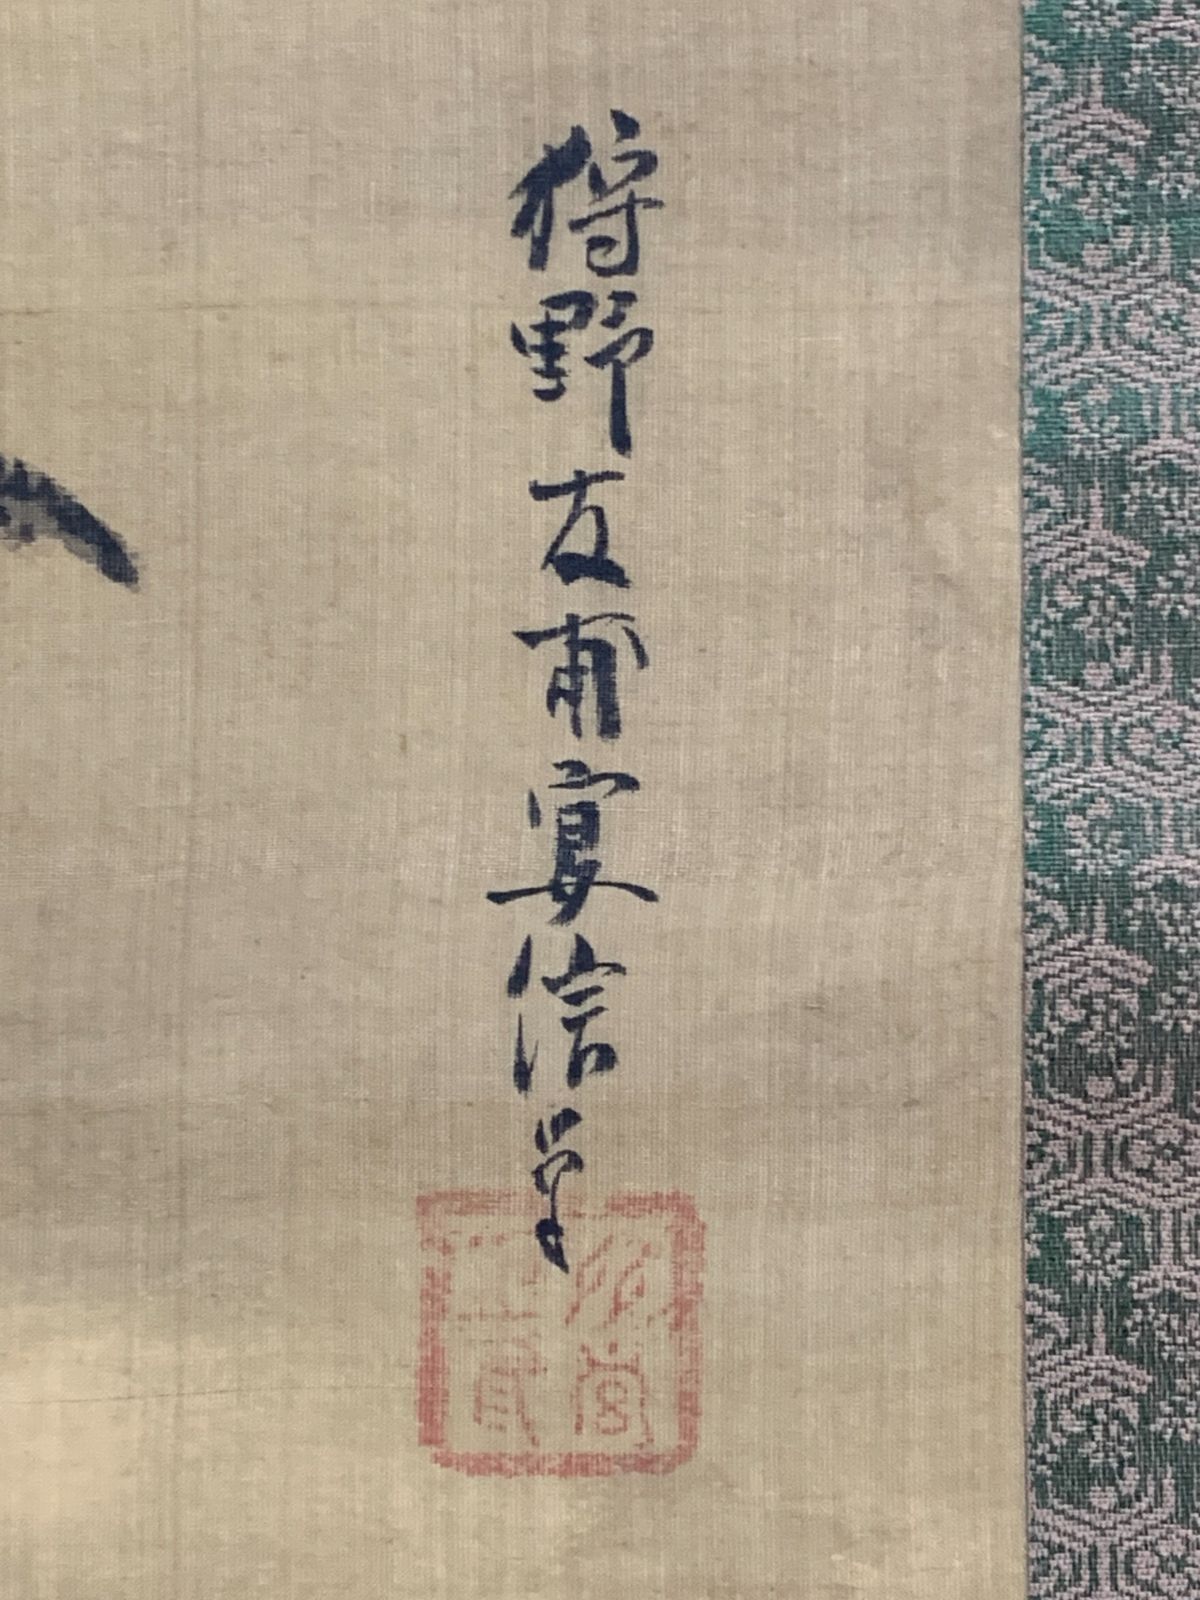 狩野友甫宴信筆